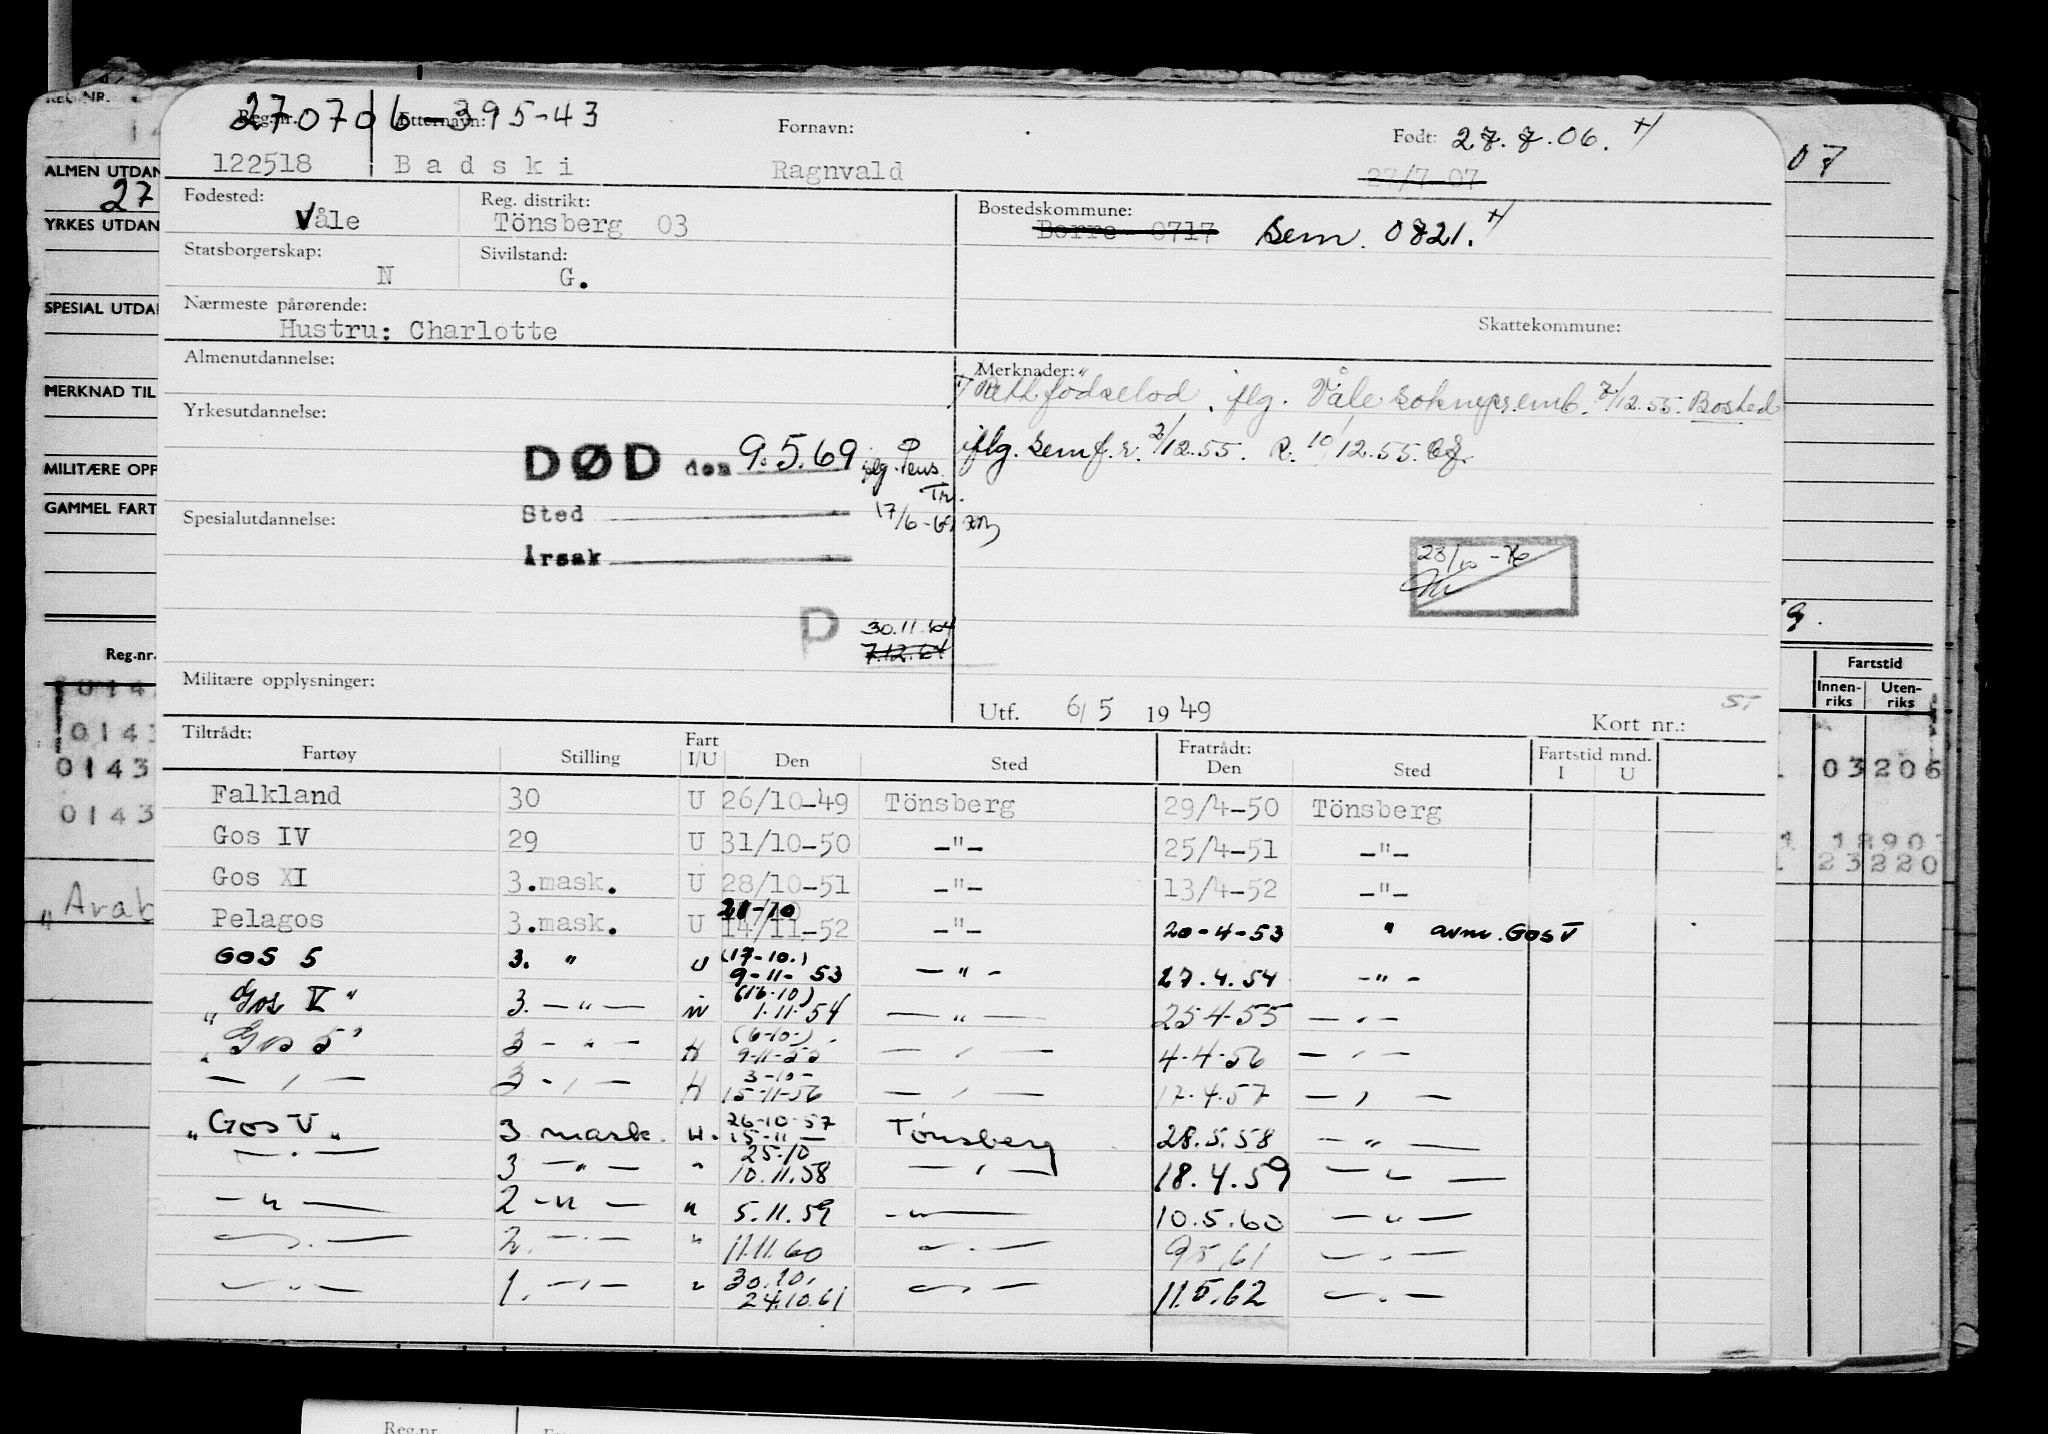 270706-395-43
Reg.nr. Etternavn: Fornavn: Født: 27.7.06. +/
122518 Badski Ragnvald 27/7-07
Fødested: Reg. distrikt: Bostedskommune:
Våle Tönsberg 03 Borre 0717 Sem. 0821. +/
Statsborgerskap: Sivilstand:
N G.
Nærmeste pårørende: Skattekommune:
Hustru: Charlotte
Almenutdannelse: Merknader:
Rett fødselsd. iflg. Våle soknepremb. 7/12.55. Bosted
Yrkesutdannelse:
DØD den 9.5.69 iflg. Pens. Tr. 17/6-69
iflg. Sem f.r. 2/12.55. R. 10/12.55.
Sted
Spesialutdannelse:
Årsak
23/10-76
P 30.11.64
7.12.64
Militære opplysninger:
Utf. 6/5 1949 Kort nr.:
Tiltrådt: Fratrådt: Fartstid mnd.
Fartøy Stilling Fart I/U Den Sted Den Sted I U
Falkland 30 U 26/10-49 Tönsberg 29/4-50 Tönsberg
Gos IV 29 U 31/10-50 -"- 25/4-51 -"-
Gos XI 3.mask. U 28/10-51 -"- 13/4-52 -"-
21-10
Pelagos 3.mask. U 14/11-52 -"- 20-4-53 " avm. GOS V
(17-10.)
GOS 5 3. " U 9-11-53 -"- 27.4.54 -"-
(16-10)
"Gos V" 3. -"- 1.11.54 -"- 25-4-55 -"-
(6-10-)
"Gos 5" 3 -"- H 9-11-55 -"- 4-4-56 -"-
3-10-
-"- 3 -"- H 15-11-56 -"- 17.4.57 -"-
26-10-57
"Gos V" 3 mask. H. 15-11- Tönsberg 28.5.58 -"-
25.10
-"- 3 -"- " 10.11.58 -"- 18.4.59 -"-
-"- 2 -"- " 5.11.59 -"- 10.5.60 -"-
-"- 2. -"- " 11.11.60 -"- 9.5.61 -"-
30.10.
-"- 1. -"- " 24.10.61 -"- 11.5.62 -"-
REG.NR.
ALMEN UTDAN
27
YRKES UTDAN
SPESIAL UTDA
MERKNAD TIL
MILITÆRE OPP
GAMMEL FART
Reg.nr.
0143
0143
0143
0143
"Arab
07
Fartstid
Innen-riks Uten-riks
03206
18903
23220
Reg.nr.